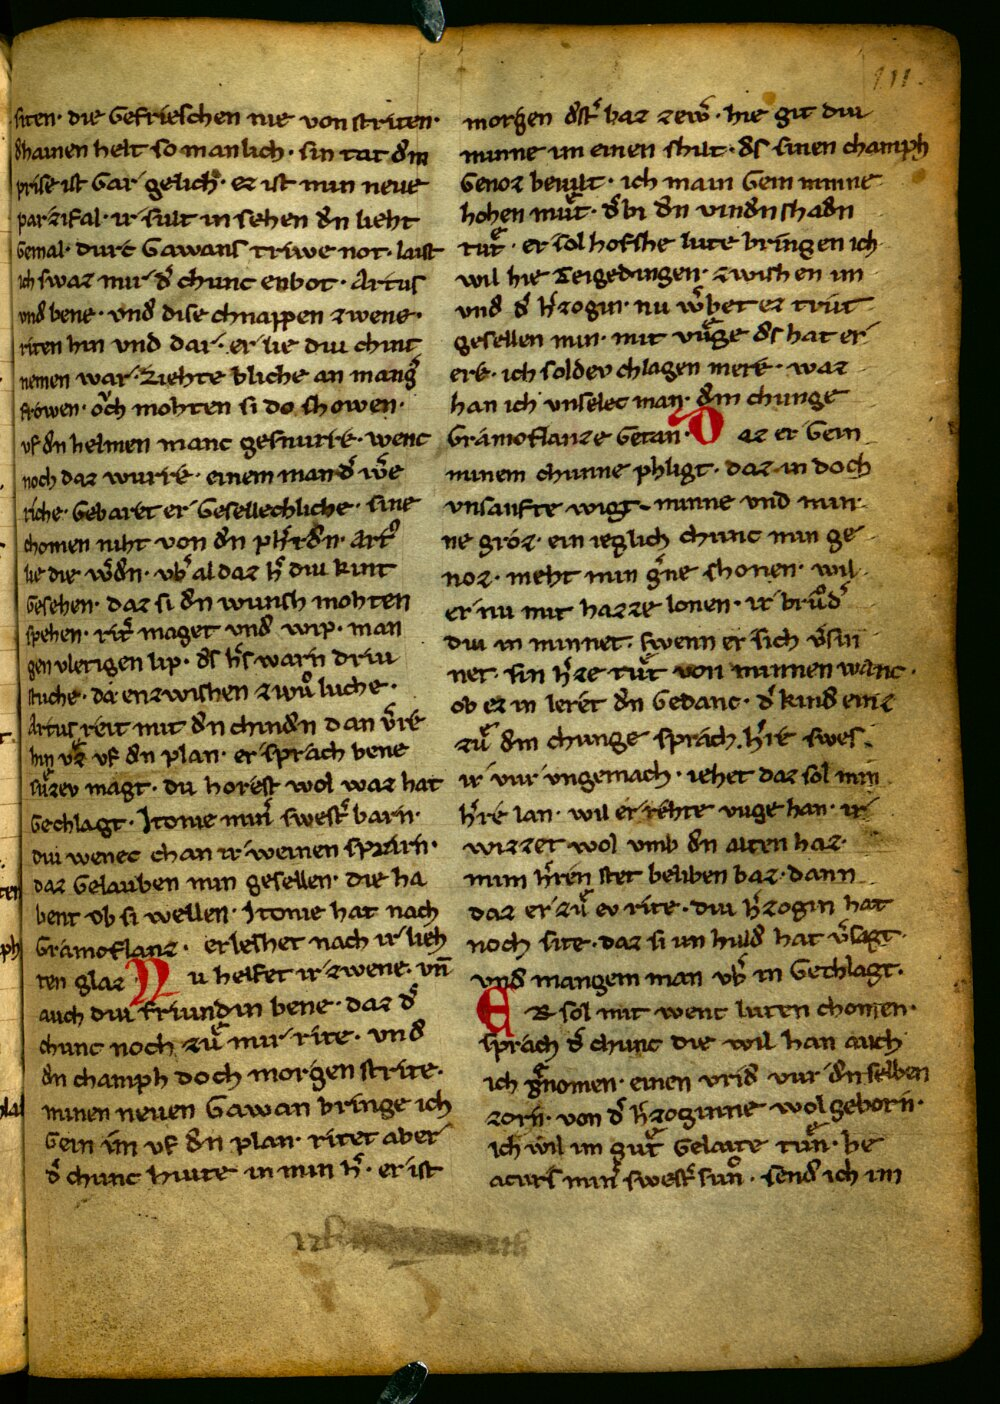 111.
siten· die Gefrieschen nie von striten·
dhainen helt so manlich· sin tat dem
prise ist Gar gelich· ez ist min neue
parzifal· ir sult in sehen dn lieht
Gemal· durc Gawans triwe not· laist
ich swaz mir d͛ chunc enbot· Artus
vnd bene· vnd dise chnappen zwene·
riten hin vnd dar· er lie diu chint
nemen war· ziehte bliche an mang͛
frowen· oͮch mohten si do schowen·
vf dn helmen manc gesnurre· wenc
noch daz wurre· einem man d͛ w͛e
riche· Gebaret er Gesellechliche· sine
chomen niht von dn ph͛rdn· Art͛
lie die w͛dn· vb͛ al daz h͛ diu kint
Gesehen· daz si dn wunsch mohten
spehen· rit͛ maget vnd wip· man
gen vlerigen lip· ds h͛s warn driu
stuche· da enzwischen zwuͦ luche·
Artus reit mit dn chindn dan v͛re
hin vͤz vf dn plan· er sprach bene
suͤzev magt· du horest wol waz hat
Gechlagt· Itonie min͛ swest͛ barn·
diu wenec chan ir weinen sparn·
daz Gelauben min gesellen· die ha
bent ob si wellen· Itonie hat nach
Gramoflanz· erleshet nach ir lieh
ten glaz Nu helfet ir zwene· vn̄
auch diu friundin bene· daz d͛
chunc noch zuͤ mir rite· vnd
dn champh doch morgen strite·
minen neuen Gawan bringe ich
Gein im vf dn plan· ritet aber
d͛ chunc hiute in min h͛· er ist
morgen dst͛ baz zew͛· hie git diu
minne im einen shilt· ds sinen champh
Genoz bevilt· ich main Gein minne
hohen muͤt· d͛ bi dn vindn shadn
tuͤt· er sol hofshe lute bringen ich
wil hie Teigedingen· zwishen im
vnd d͛ h͛zogin· nu w͛bet ez trut
gesellen min· mit vuͤge ds hat er
ere· ich sol dev chlagen mere· waz
han ich vnselec man· dem chunge
Gramoflanze Getan· Daz er Gein
minem chunne phligt· daz in doch
vnsanfte wigt· minne vnd min
ne groz· ein ieglich chunc min ge
noz· meht min g͛ne schonen· wil
er nu mit hazze lonen· ir bruͦd͛
diu in minnet· swenn er sich v͛sin
net· sin h͛ze tuͤt von minnen wanc·
ob ez in leret dn Gedanc· d͛ kind einz
zuͤ dem chunge sprach· h͛re swes
ir vur vngemach· iehet daz sol min
h͛re lan· wil er rehte vuge han· ir
wizzet wol vmb dn alten haz·
mim h͛ren stet beliben baz· dann
daz er zuͤ ev rite· diu h͛zogin hat
noch site· daz si im huld hat v͛sagt·
vnd mangem man vb͛ in Gechlagt·
ER sol mit wenc luten chomen·
sprach d͛ chunc die wil han auch
ich g͛nomen· einen vrid vur dn selben
zorn· von d͛ h͛zoginne wolgeborn·
ich wil im guͤt Gelaite tuͤn· be
acurs min͛ swest͛ suͦn· send ich im